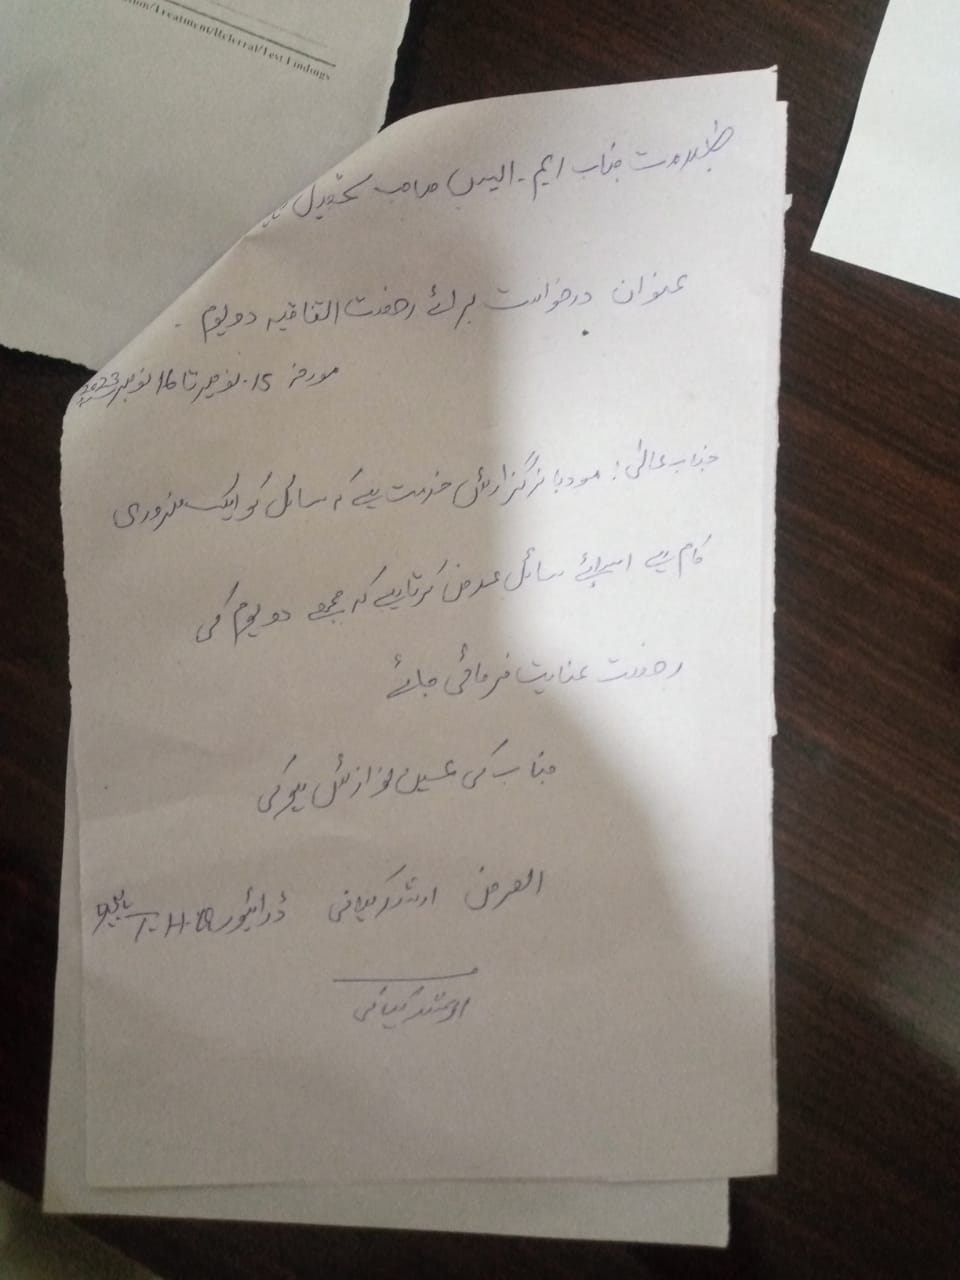 ion/Treatment/Referral/Test Findings
بخدمت جناب ایم۔ایس صاحب تحصیل
عنوان درخواست برائے رخصت اتفاقیہ دو یوم ۔
مورخہ 15۔نومبر تا 16 نومبر 2023
جناب عالی! مودبانہ گزارش خدمت ہے کہ سائل کو ایک ضروری
کام ہے اسلئے سائل عرض کرتا ہے کہ مجھے دو یوم کی
رخصت عنایت فرمائی جائے
جناب کی عین نوازش ہوگی
العرض ارشد کیانی ڈرائیور T.H.Q
ارشد کیانی